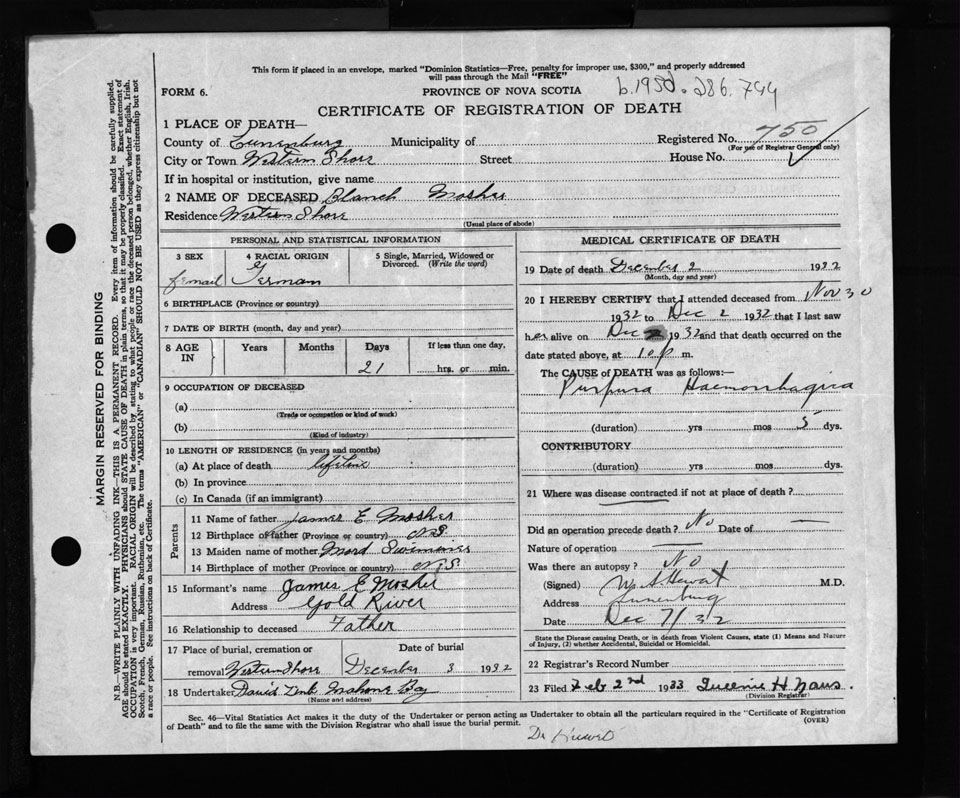 This form if placed in an envelope, marked "Dominion Statistics—Free, penalty for improper use, $300," and properly addressed
will pass through the Mail "FREE"
FORM 6.
PROVINCE OF NOVA SCOTIA
CERTIFICATE OF REGISTRATION OF DEATH
1 PLACE OF DEATH—
County of Lunenburg Municipality of
Registered No. 750
(For use of Registrar General only)
City or Town Western Shore Street House No.
If in hospital or institution, give name
2 NAME OF DECEASED Blanch Mosher
Residence Western Shore
(Usual place of abode)
PERSONAL AND STATISTICAL INFORMATION
3 SEX
femail
4 RACIAL ORIGIN
German
5 Single, Married, Widowed or
Divorced. (Write the word)
6 BIRTHPLACE (Province or country)
7 DATE OF BIRTH (month, day and year)
8 AGE IN
Years Months Days If less than one day,
21 hrs. or min.
9 OCCUPATION OF DECEASED
(a)
(Trade or occupation or kind of work)
(b)
(Kind of industry)
10 LENGTH OF RESIDENCE (in years and months)
(a) At place of death lifetime
(b) In province
(c) In Canada (if an immigrant)
Parents
11 Name of father James E Mosher
12 Birthplace of father (Province or country) N.S.
13 Maiden name of mother
14 Birthplace of mother (Province or country) N.S.
15 Informant's name James E Mosher
Address Gold River
16 Relationship to deceased Father
17 Place of burial, cremation or Date of burial
removal Western Shore December 3 1932
18 Undertaker David Mahone Bay
(Name and address)
MEDICAL CERTIFICATE OF DEATH
19 Date of death December 2 1932
(Month, day and year)
20 I HEREBY CERTIFY that I attended deceased from Nov 30
1932 to Dec 2 1932 that I last saw
her alive on Dec 2 1932 and that death occurred on
date stated above, at 10 p m.
The CAUSE of DEATH was as follows:
Purpura Haemorrhagica
(duration) yrs mos 5 dys.
CONTRIBUTORY
(duration) yrs mos dys.
21 Where was disease contracted if not at place of death?
Did an operation precede death? No Date of —
Nature of operation —
Was there an autopsy? No
(Signed) M.D.
Address Lunenburg
Date Dec 7/32
State the Disease causing Death, or in death from Violent Causes, state (1) Means and Nature
of Injury, (2) whether Accidental, Suicidal or Homicidal.
22 Registrar's Record Number
23 Filed Feb 2nd 1933 H
(Division Registrar)
Sec. 46—Vital Statistics Act makes it the duty of the Undertaker or person acting as Undertaker to obtain all the particulars required in the "Certificate of Registration
of Death" and to file the same with the Division Registrar who shall issue the burial permit.
(OVER)
MARGIN RESERVED FOR BINDING
N.B.—WRITE PLAINLY WITH UNFADING INK—THIS IS A PERMANENT RECORD. Every item of information should be carefully supplied.
AGE should be stated EXACTLY. PHYSICIANS should STATE CAUSE OF DEATH in plain terms, so that it may be properly classified. Exact statement of
OCCUPATION is very important. RACIAL ORIGIN will be described by stating to what people or race the deceased person belonged, whether English, Irish,
Scotch, French, German, Russian, Ruthenian, etc. The terms "AMERICAN" or "CANADIAN" SHOULD NOT BE USED as they express citizenship but not
a race or people. See instructions on back of Certificate.